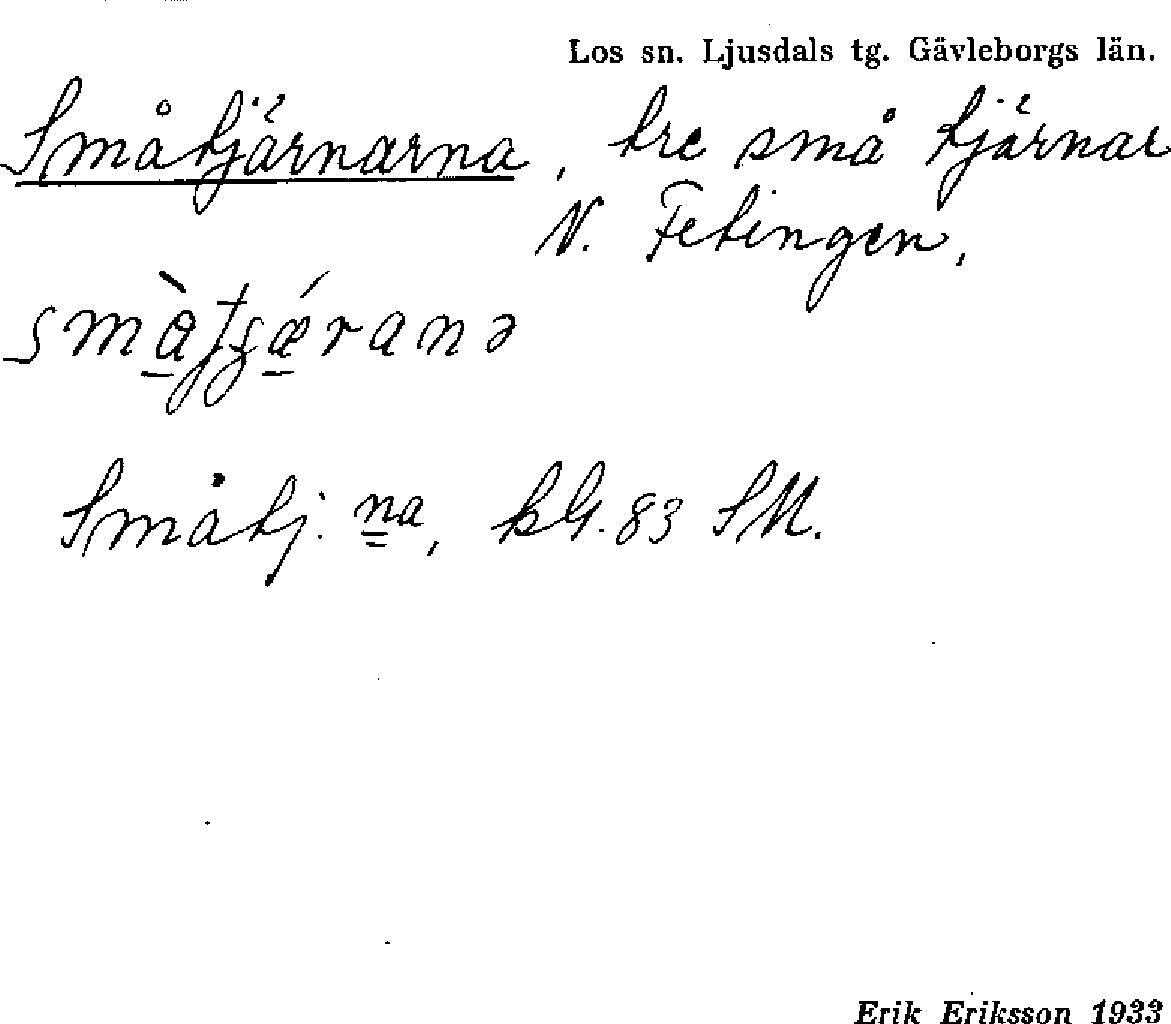 Los sn. Ljusdals tg. Gävleborgs län.
Småtjärnarna, tre små tjärnar
N. Fetingen,
Småtj. na, kbl. 83 SM.
Erik Eriksson 1933